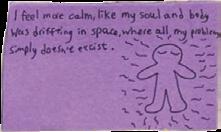 I feel more calm, like my soul and body
was driffting in space, where all, my problems
simply doesn't excist.